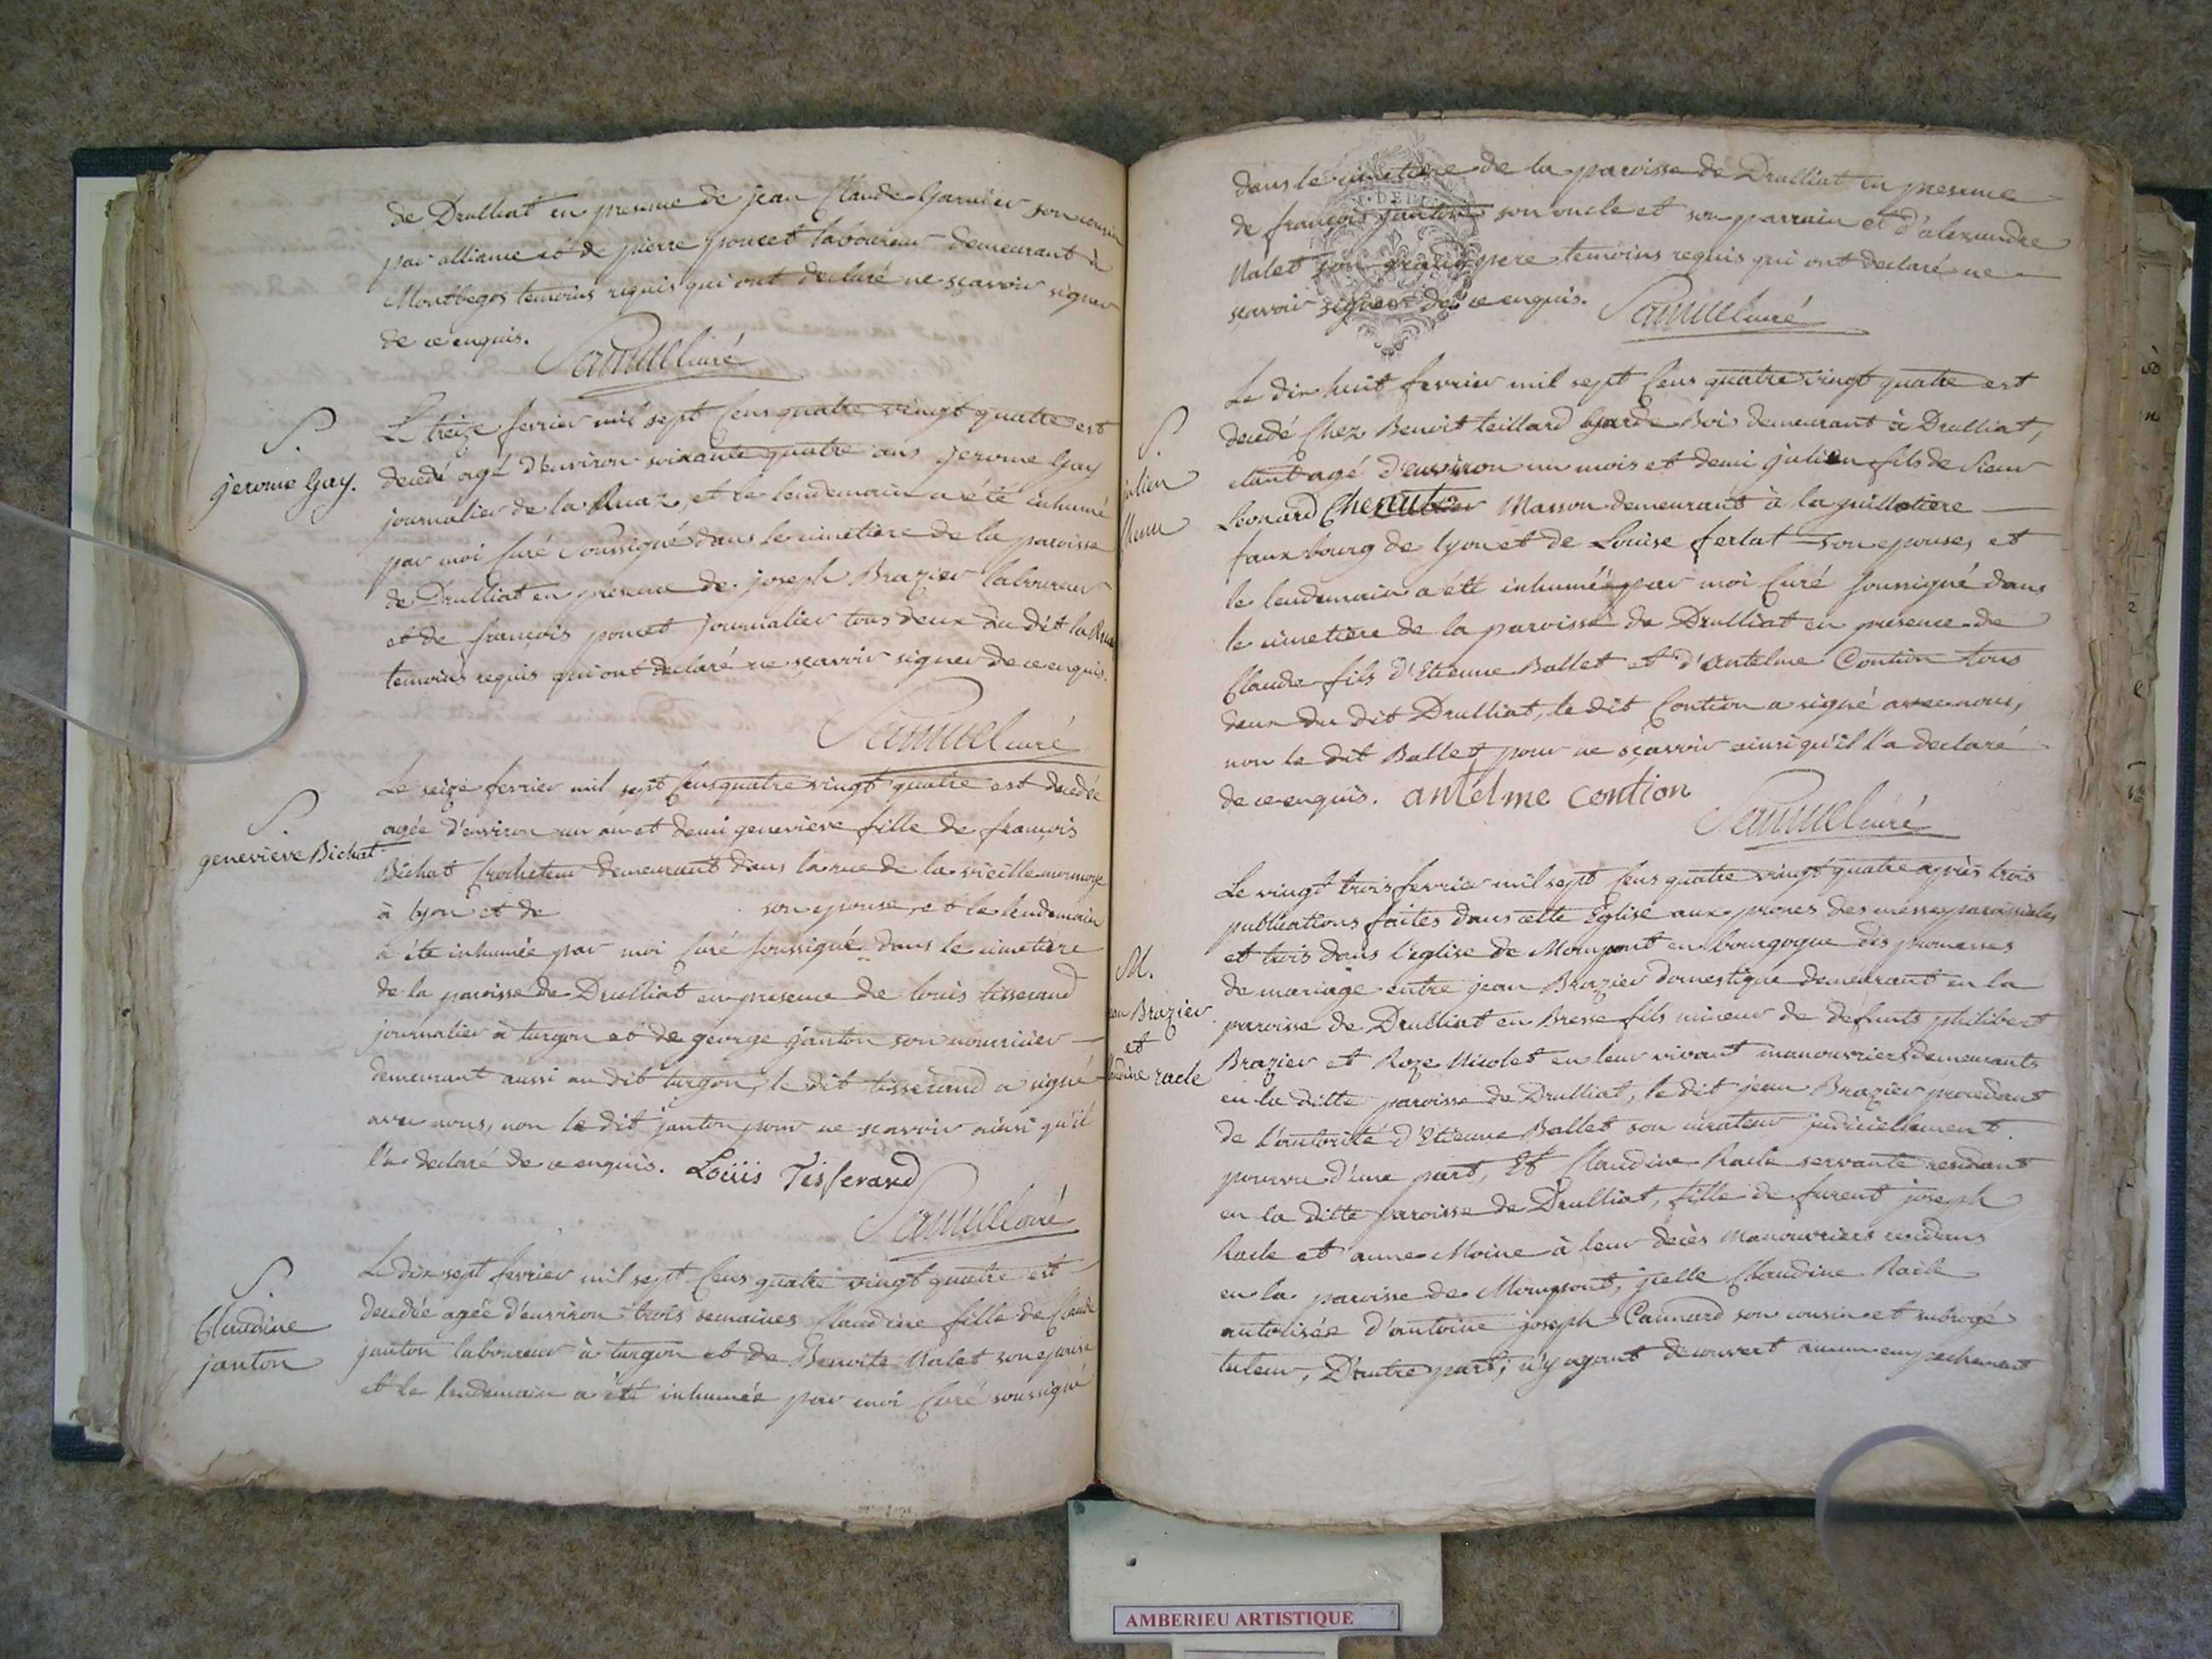 de Drulliat en presence de jean Claude Garnier son cousin
par alliance et de pierre poncet laboureur demeurant à
Montbegos temoins requis qui ont declaré ne sçavoir signer
de ce enquis. Samuel curé
S.
jerome Gay.
Le treize fevrier mil sept Cens quatre vingt quatre est
decedé agé d'environ soixante quatre ans jerome Gay
journalier de la Ruaz, et le lendemain a été inhumé
par moi Curé Soussigné dans le cimetiere de la paroisse
de Drulliat en presence de joseph Brazier laboureur
et de françois poncet journalier tous deux du dit la Ruaz
temoins requis qui ont declaré ne sçavoir signer de ce enquis.
Samuel curé
S.
genevieve Bichat
Le seize fevrier mil sept Cens quatre vingt quatre est decedée
agée d'environ un an et demi genevieve fille de françois
Bichat Crocheteur demeurant dans la rue de la vieille monnoye
à lyon et de son epouse, et le lendemain
a été inhumée par moi Curé soussigné dans le cimetiere
de la paroisse de Drulliat en presence de louis tisserand
journalier à turgon et de george janton son nourricier
demeurant aussi au dit turgon, le dit tisserand a signé
avec nous, non le dit janton pour ne sçavoir ainsi qu'il
l'a declaré de ce enquis. Loüis Tisserand
Samuel curé
S.
Claudine
janton
Le dix sept fevrier mil sept Cens quatre vingt quatre est
decedée agée d'environ trois semaines Claudine fille de Claude
janton laboureur à turgon et de Benoite Nalet son epouse
et le lendemain a été inhumée par moi Curé soussigné
dans le cimetiere de la paroisse de Drulliat en presence
de françois janton son oncle et son parrain et d'alexandre
Nalet son grand pere temoins requis qui ont declaré ne
sçavoir signer de ce enquis. Samuel curé
S.
julien
Le dix huit fevrier mil sept Cens quatre vingt quatre est
decedé Chez Benoit teillard Garde Bois demeurant à Drulliat,
etant agé d'environ un mois et demi julien fils de Sieur
Leonard Masson demeurant à la guillotiere
faux bourg de lyon et de Louise ferlat son epouse, et
le lendemain a été inhumé par moi Curé soussigné dans
le cimetiere de la paroisse de Drulliat en presence de
Claude fils d'Etienne Ballet et d'Antelme Contion tous
deux du dit Drulliat, le dit Contion a signé avec nous,
non le dit Ballet pour ne sçavoir ainsi qu'il l'a declaré
de ce enquis. antelme contion
Samuel curé
M.
jean Brazier
et
Claudine racle
Le vingt trois fevrier mil sept Cens quatre vingt quatre après trois
publications faites dans cette Eglise aux prones des messes paroissiales
et trois dans l'eglise de Mompont en bourgogne des promesses
de mariage entre jean Brazier domestique demeurant en la
paroisse de Drulliat en Bresse fils mineur de defunts philibert
Brazier et Roze Nicolet en leur vivant manouvriers demeurants
en la ditte paroisse de Drulliat, le dit jean Brazier procedant
de l'autorité d'Etienne Ballet son curateur judiciellement
pourvu d'une part, Et Claudine Racle servante residant
en la ditte paroisse de Drulliat, fille de furent joseph
Racle et anne Moine à leur decès manouvriers residans
en la paroisse de Mompont, icelle Claudine Racle
autorisée d'antoine joseph Cannard son cousin et subrogé
tuteur, D'autre part; n'y ayant decouvert aucun empechement
AMBERIEU ARTISTIQUE